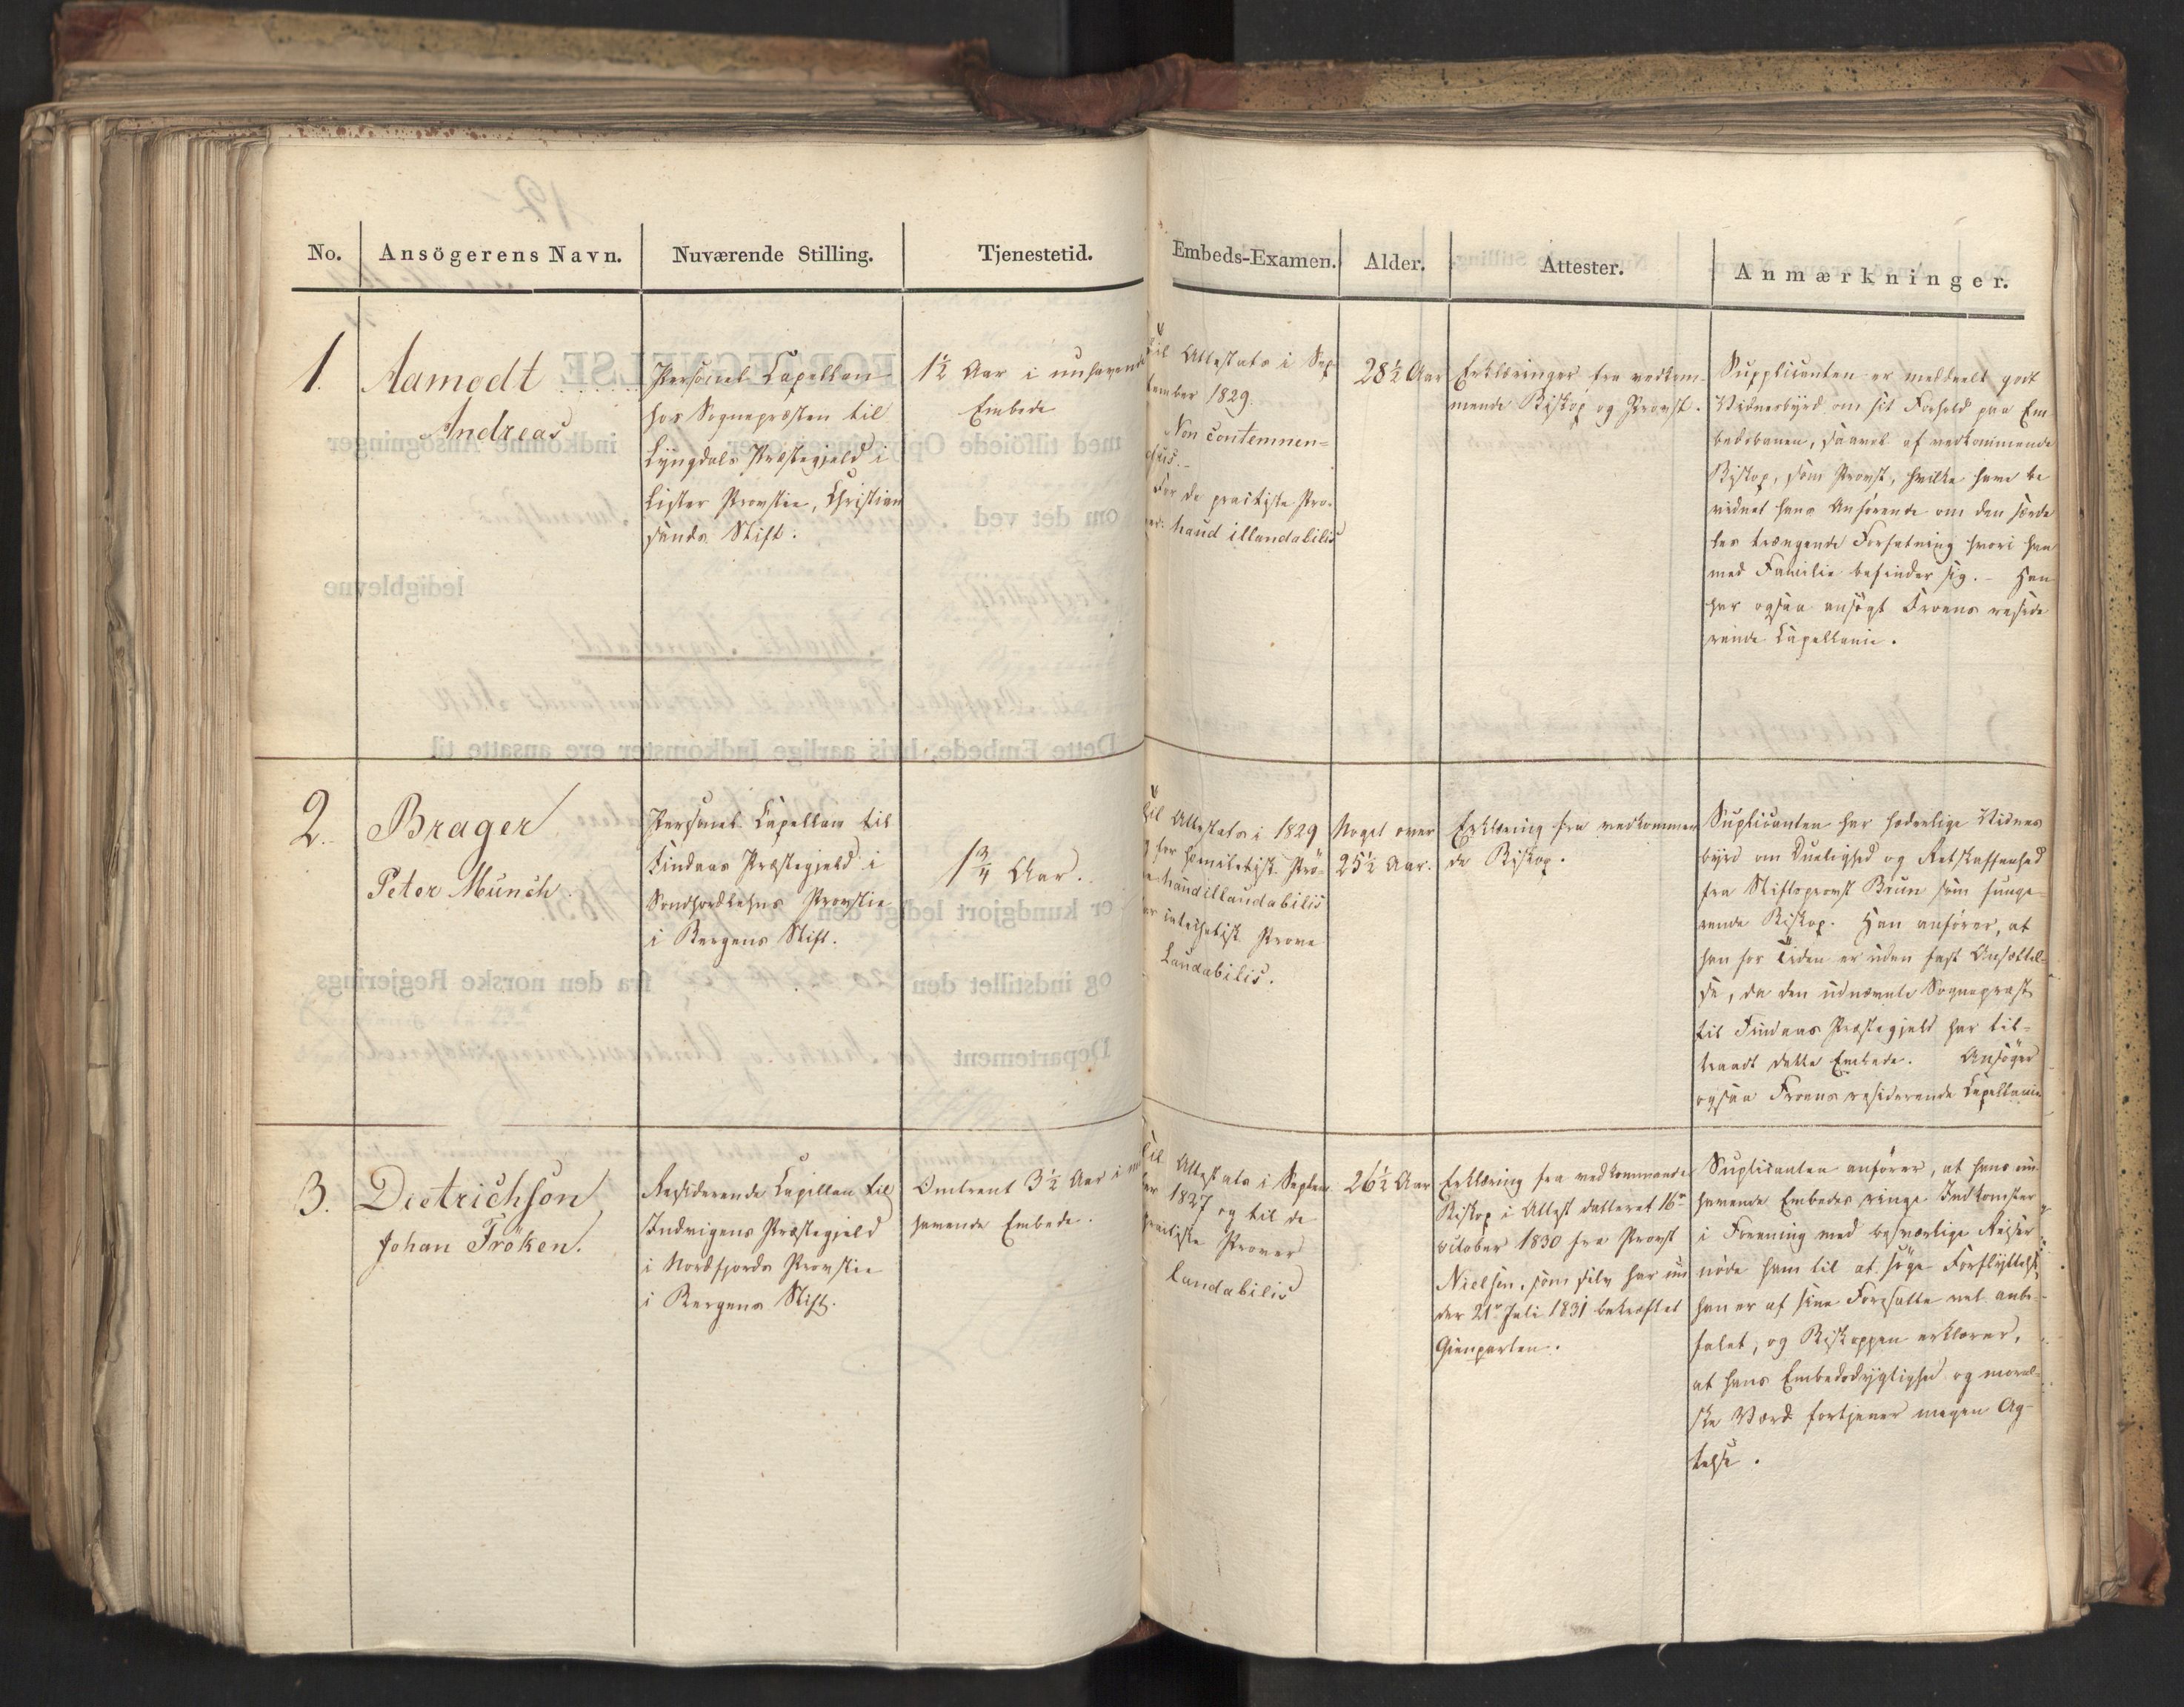 No.
Ansögerens Navn.
Nuværende Stilling.
Tjenestetid.
Embeds-Examen.
Alder.
Attester.
Anmærkninger.
1.
Aamodt
Andreas
Personel Capellan
hos Sognepræsten til
Lyngdals Præstegjeld i
Lister Provstie, Christian
sands Stift.
1½ Aar i nuhavende
Embede
til Attestats i Sep-
tember 1829.
Non contemnen-
dus.-
For de practiske Prø-
ver: haud illaudabilis
28½ Aar
Erklæringer fra vedkom-
mende Biskop og Provst.
Supplicanten er meddeelt godt
Vidnesbyrd om sit Forhold paa Em
bedsbanen, saavel af vedkommende
Biskop, som Provst, hvilke have be
vidnet hans Anførende om den særde
les trængende Forfatning hvori han
med Familie befinder sig. - Han
har ogsaa ansøgt Froens reside
rende Capellanie.
2.
Brager
Peter Münch.
Personel Capellan til
Findaas Præstegjeld i
Søndhordlehns Provstie
i Bergens Stift.
1¾ Aar.
til Attestats i 1829
for homiletisk Prø-
ve haud illaudabilis
for catechetisk Prøve
Laudabilis.
Noget over
25½ Aar.
Erklæring fra vedkommen
de Biskop.
Suplicanten har hæderlige Vidnes
byrd om Duelighed og Retskaffenhed
fra Stiftsprovst Brun som funge-
rende Biskop. Han anfører, at
han for Tiden er uden fast Ansættel-
se, da den udnævnte Sognepræst
til Findaas Præstegjeld har til-
traadt dette Embede. Ansøger
ogsaa Froens residerende Capellanie
3.
Dietrichson,
Johan Fröken.
Residerende Capellan til
Indvigens Præstegjeld
i Nordfjords Provstie
i Bergens Stift.
Omtrent 3½ Aar i nu
havende Embede.
til Attestats i Septem-
ber 1827 og til de
practiske Prøver
laudabilis
26½ Aar
Erklæring fra vedkommende
Biskop i Attest datteret 16de
October 1830 fra Provst
Nielsen, som selv har un
der 21de Juli 1831 bekræftet
Gienparten.
Suplicanten anfører, at hans nu-
havende Embedes ringe Indkomster
i Forening med besværlige Reiser
nøde ham til at søge Forflyttelse,
han er af sine Foresatte vel anbe-
falet, og Biskoppen erklærer,
at hans Embedsdygtighed og moral-
ske Værd fortjener megen Ag-
telse.